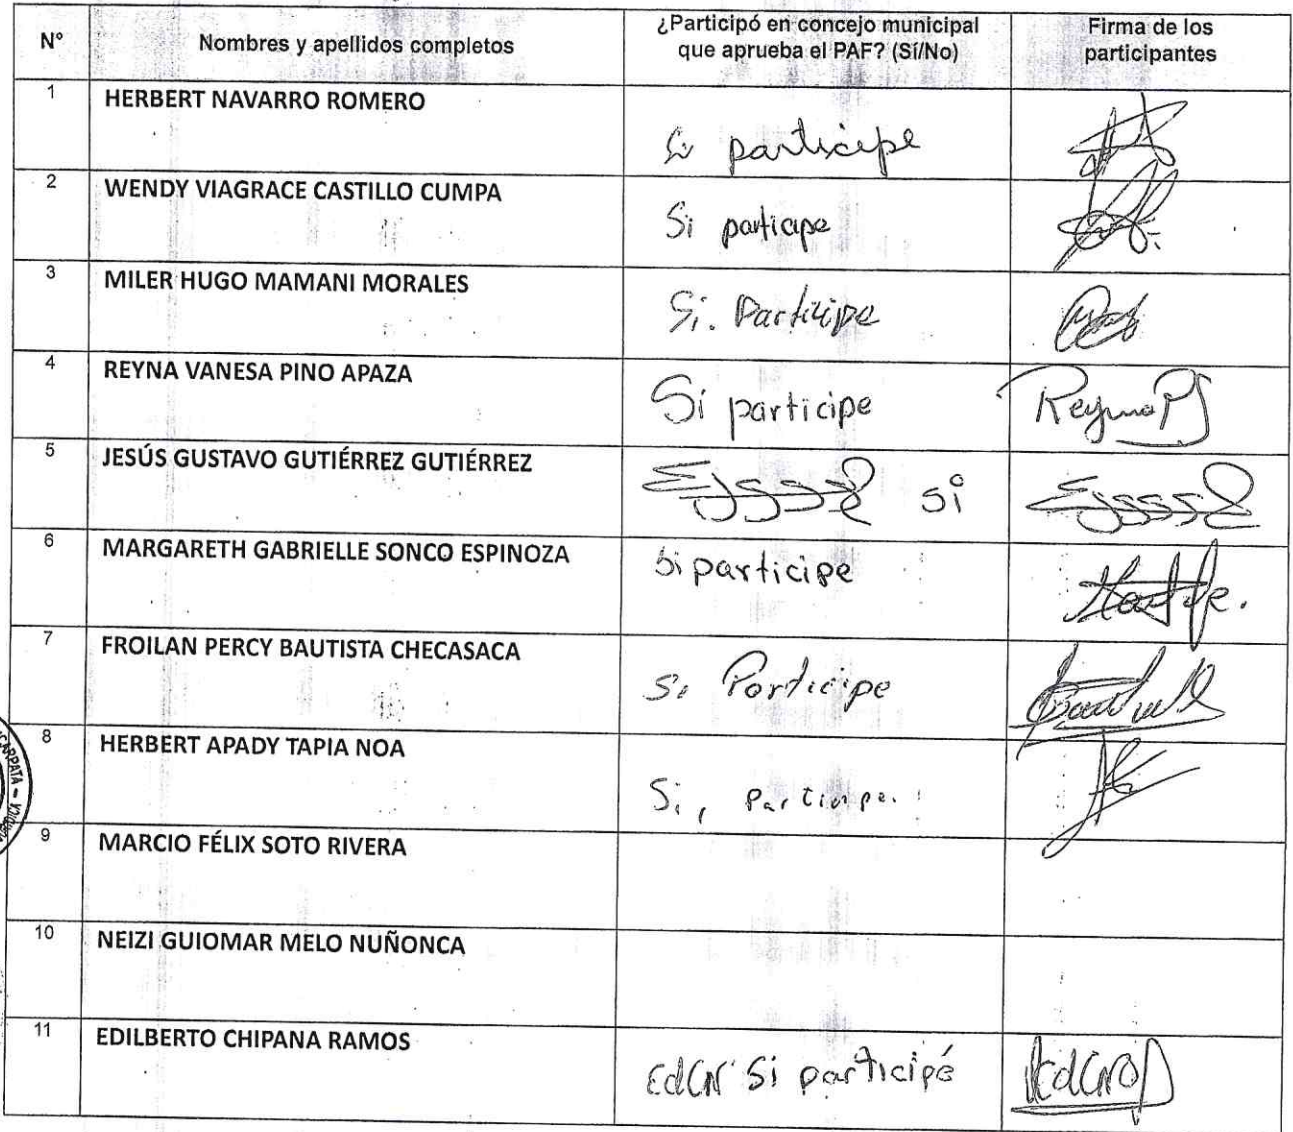 N° Nombres y apellidos completos ¿Participó en concejo municipal que aprueba el PAF? (Sí/No) Firma de los participantes
1 HERBERT NAVARRO ROMERO
Si participe
2 WENDY VIAGRACE CASTILLO CUMPA
Si participe
3 MILER HUGO MAMANI MORALES
Si. Participe
4 REYNA VANESA PINO APAZA
Si participe
5 JESÚS GUSTAVO GUTIÉRREZ GUTIÉRREZ
si
6 MARGARETH GABRIELLE SONCO ESPINOZA
Si participe
7 FROILAN PERCY BAUTISTA CHECASACA
Si Participe
8 HERBERT APADY TAPIA NOA
Si, Participe.
9 MARCIO FÉLIX SOTO RIVERA
10 NEIZI GUIOMAR MELO NUÑONCA
11 EDILBERTO CHIPANA RAMOS
Si participé